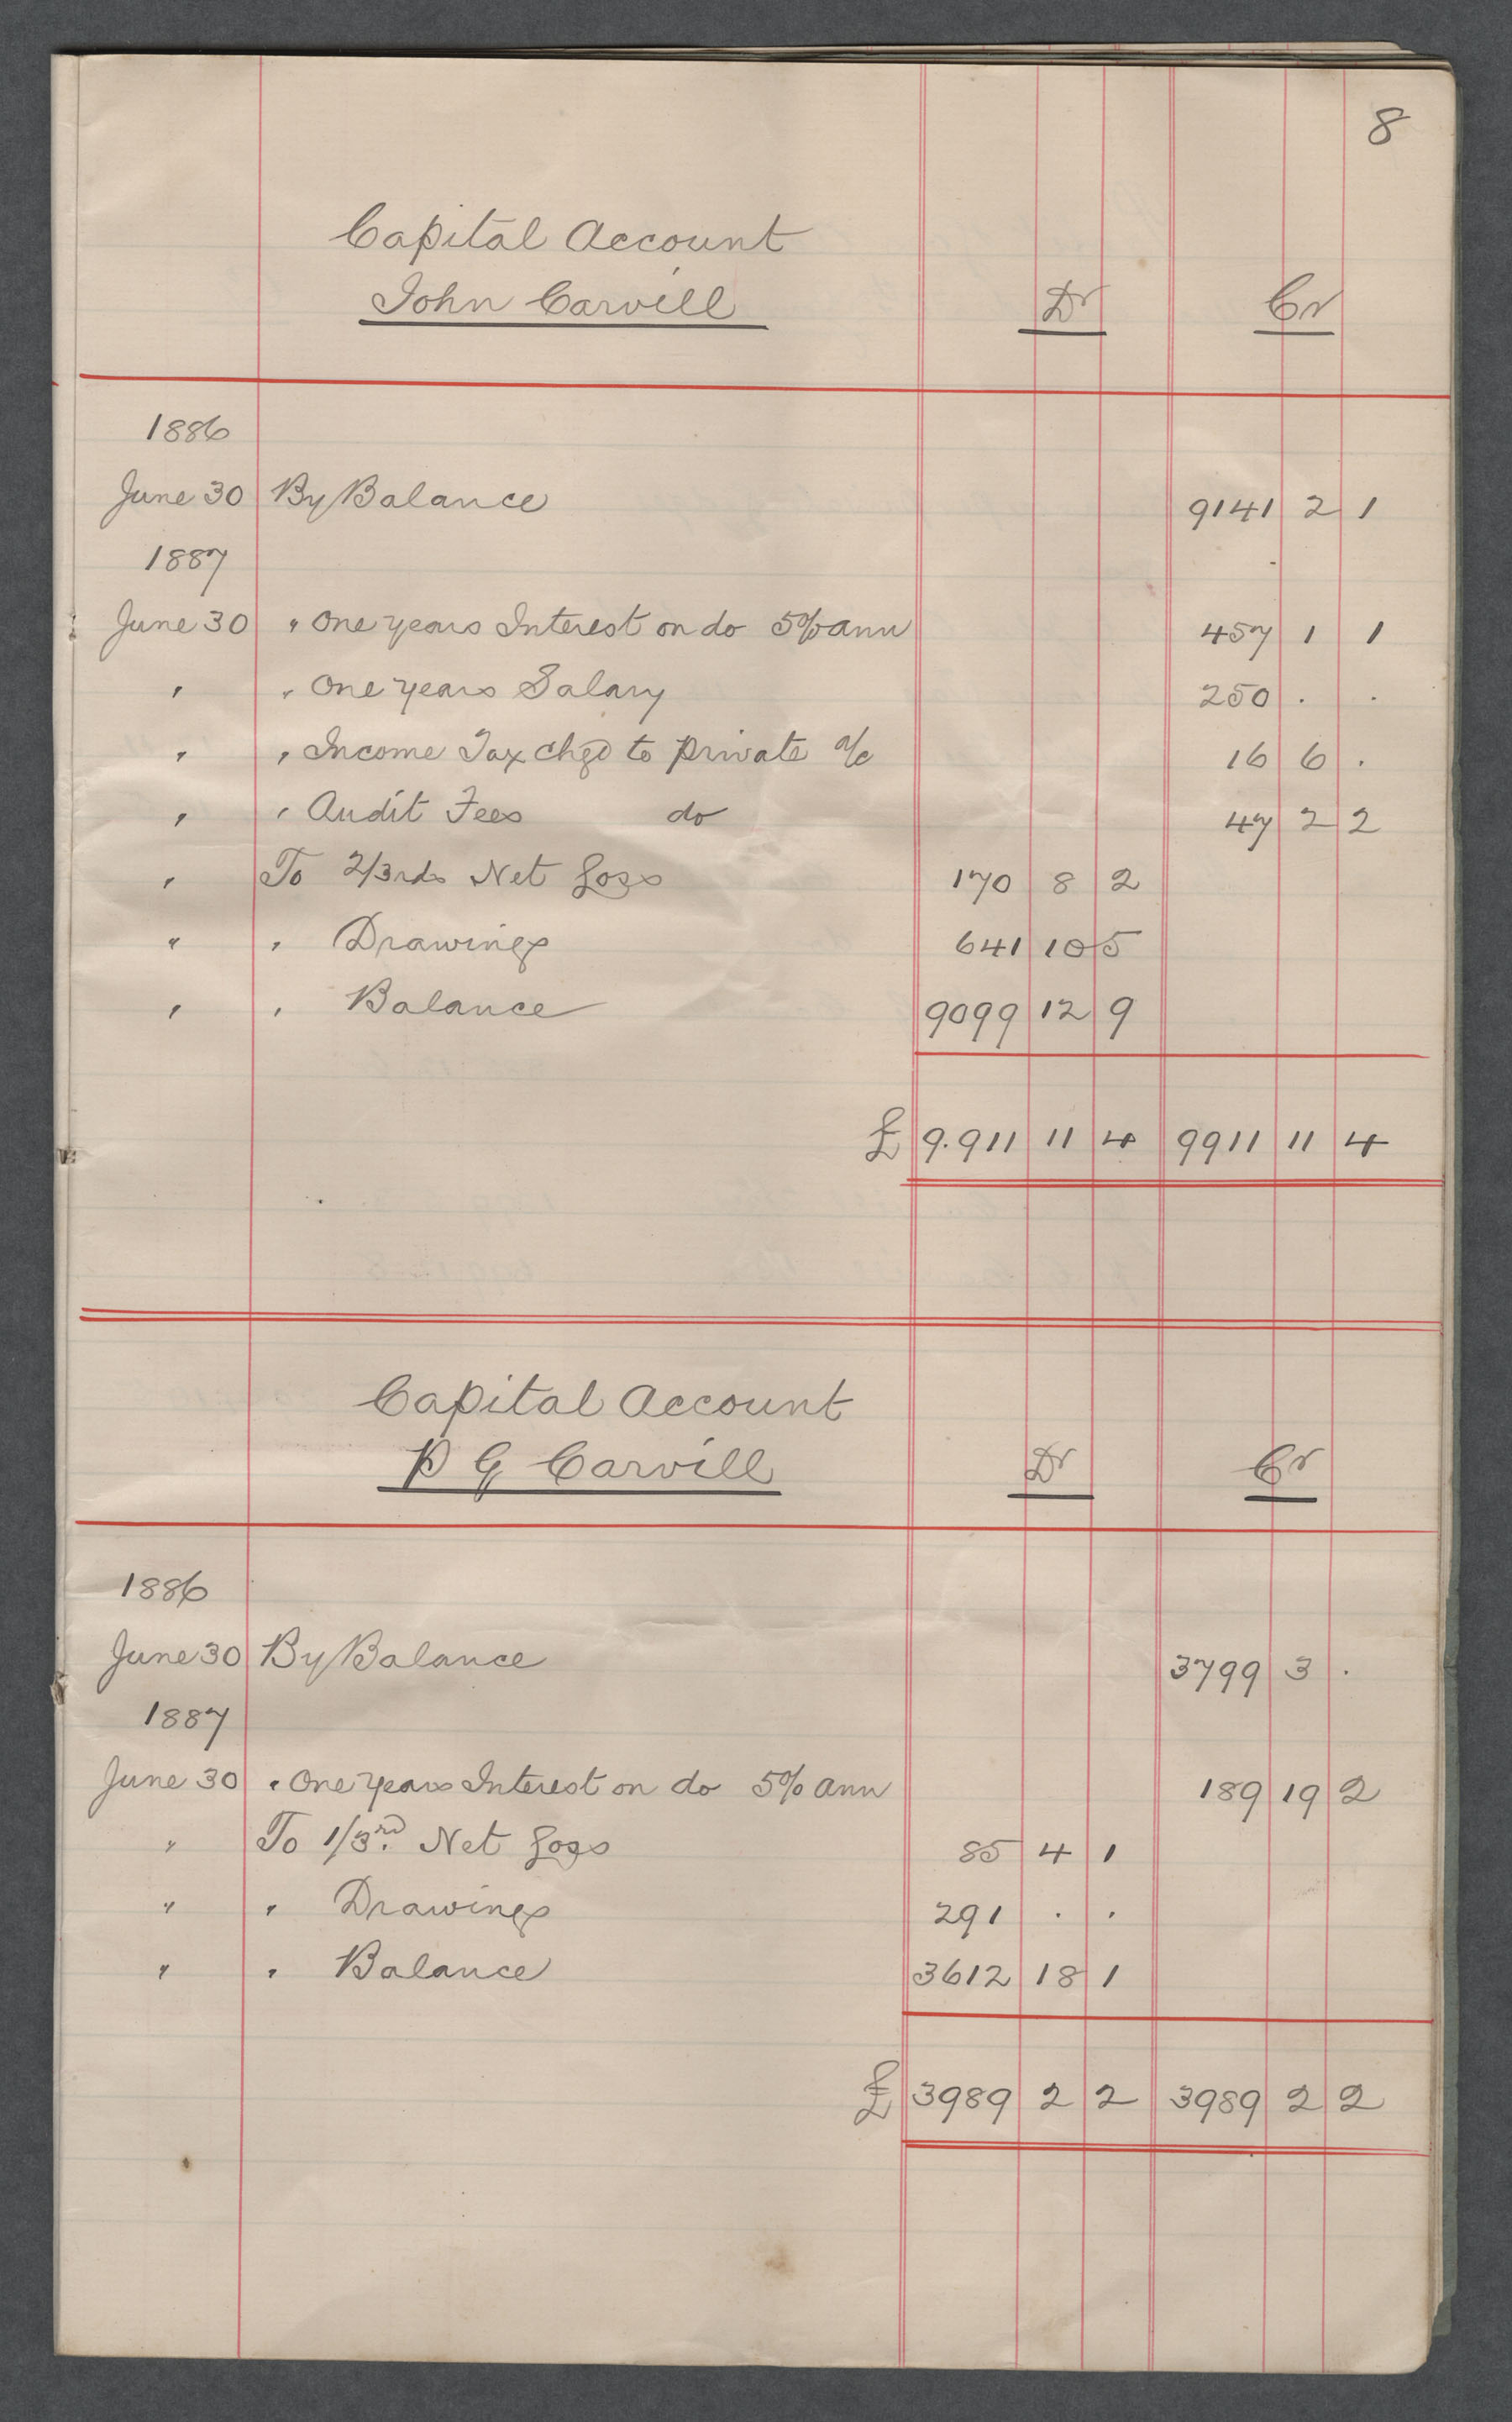 8
Capital Account
John Carvill Dr Cr
1886
June 30 By Balance 9141 2 1
1887
June 30 " One years Interest on do 5% ann 457 1 1
" " One years Salary 250 . .
" " Income Tax chgd to private a/c 16 6 .
" " Audit Fees do 47 2 2
" To 2/3rds Net Loss 170 8 2
" " Drawings 641 10 5
" " Balance 9099 12 9
£ 9.911 11 4 9911 11 4
Capital Account
P G Carvill Dr Cr
1886
June 30 By Balance 3799 3 .
1887
June 30 " One Years Interest on do 5% ann 189 19 2
" To 1/3rd. Net Loss 85 4 1
" " Drawings 291 . .
" " Balance 3612 18 1
£ 3989 2 2 3989 2 2